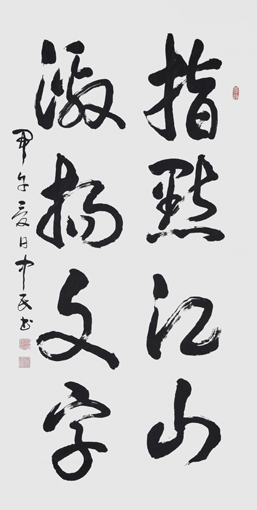 指點江山
激揚文字
甲午夏日中民书